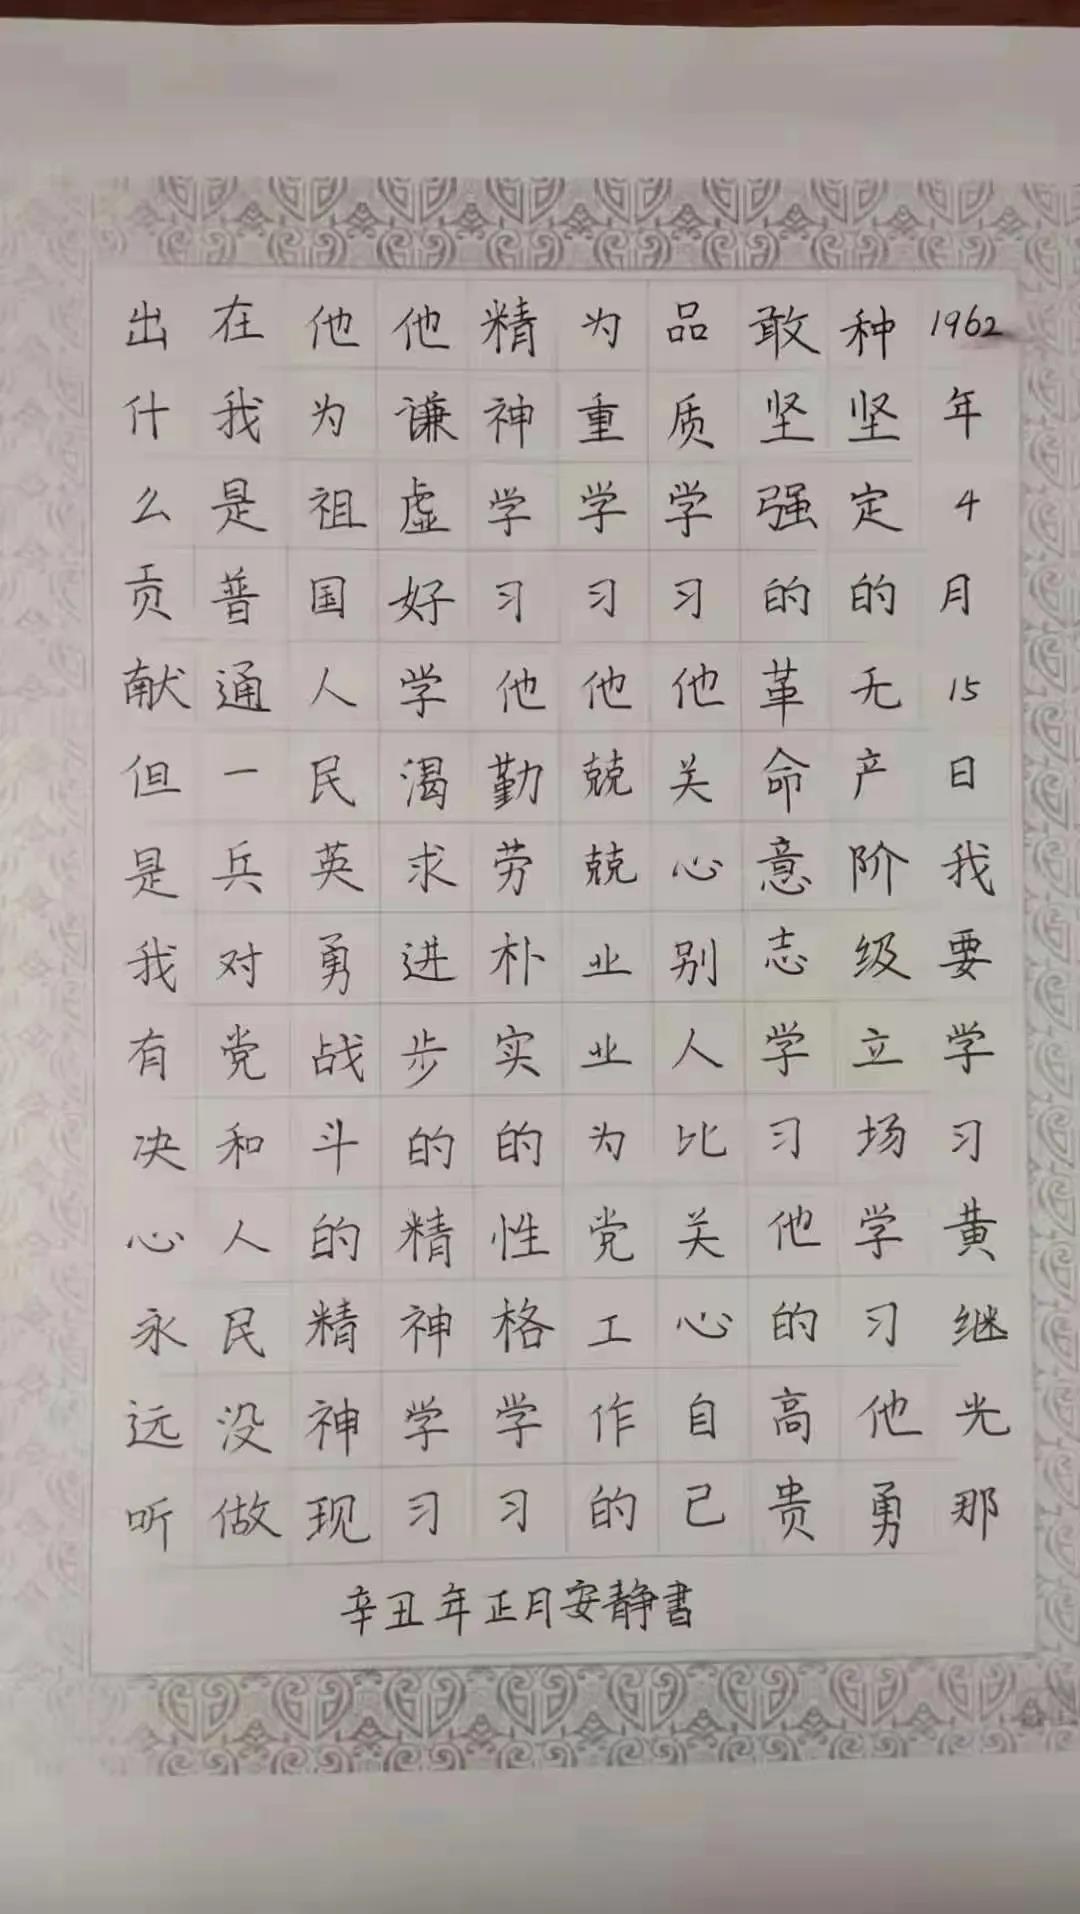 1962年4月15日我要学习黄继光那
种坚定的无产阶级立场学习他勇
敢坚强的革命意志学习他的高贵
品质学习他关心别人比关心自己
为重学习他兢兢业业为党工作的
精神学习他勤劳朴实的性格学习
他谦虚好学渴求进步的精神学习
他为祖国人民英勇战斗的精神现
在我是普通一兵对党和人民没做
出什么贡献但是我有决心永远听
辛丑年正月安静書